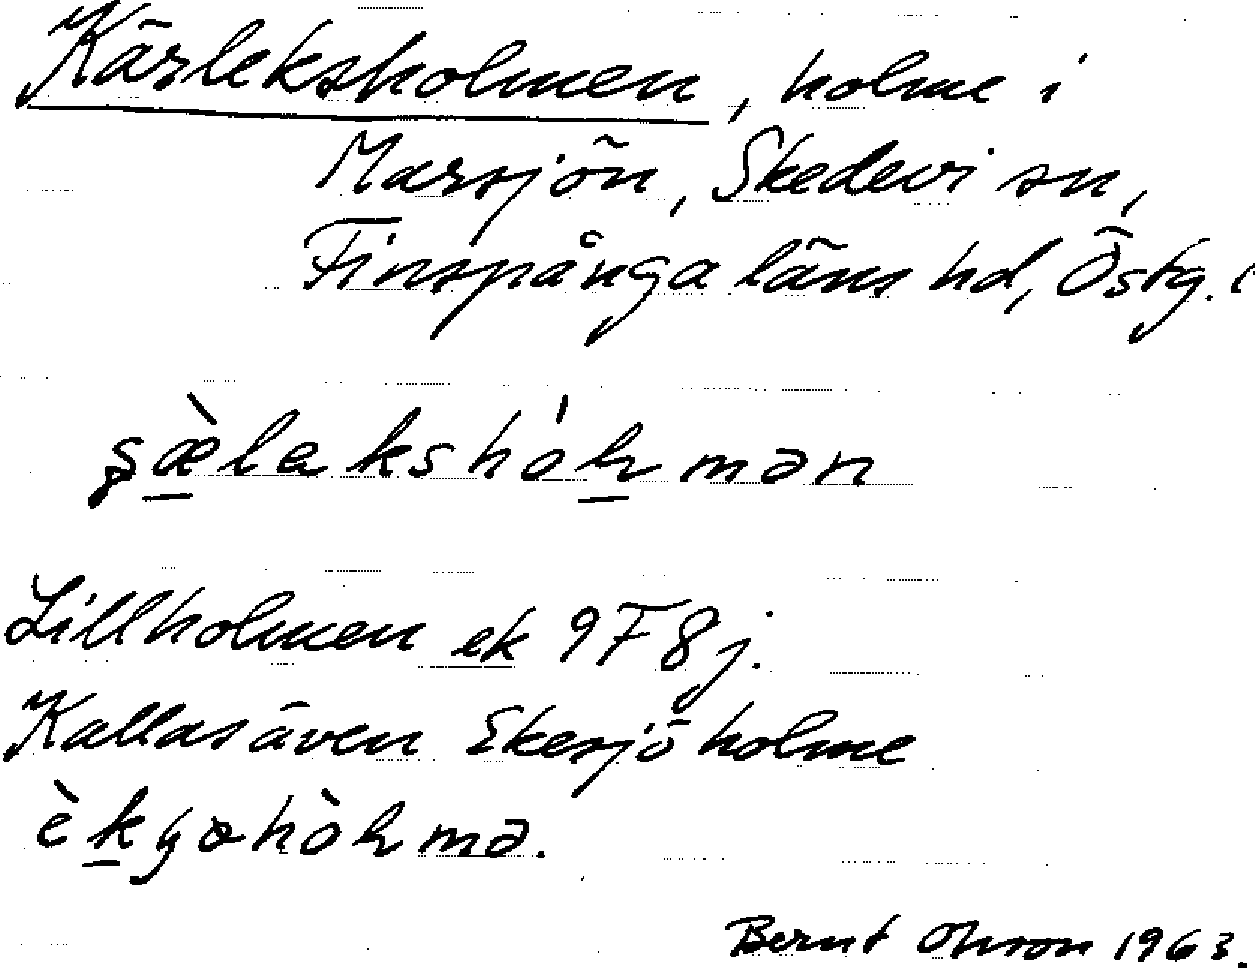 Kärleksholmen, holme i
Marsjön, Skedevi sn,
Finspånga läns hd, Östg. l
Lillholmen ek 9F8j.
Kallas även Ekesjöholme
Bernt Olsson 1963.